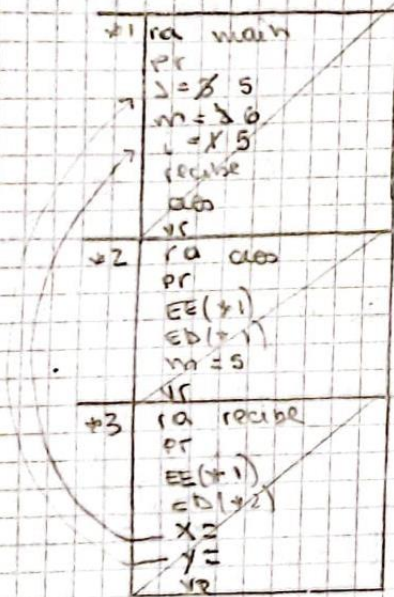 *1 ra main
pr
J = 3 5
m = 3 6
i = 1 5
recibe
dos
vr
*2 ra dos
pr
EE(*1)
ED(*1)
m = 5
vr
*3 ra recibe
pr
EE(*1)
ED(*2)
x =
y =
vr